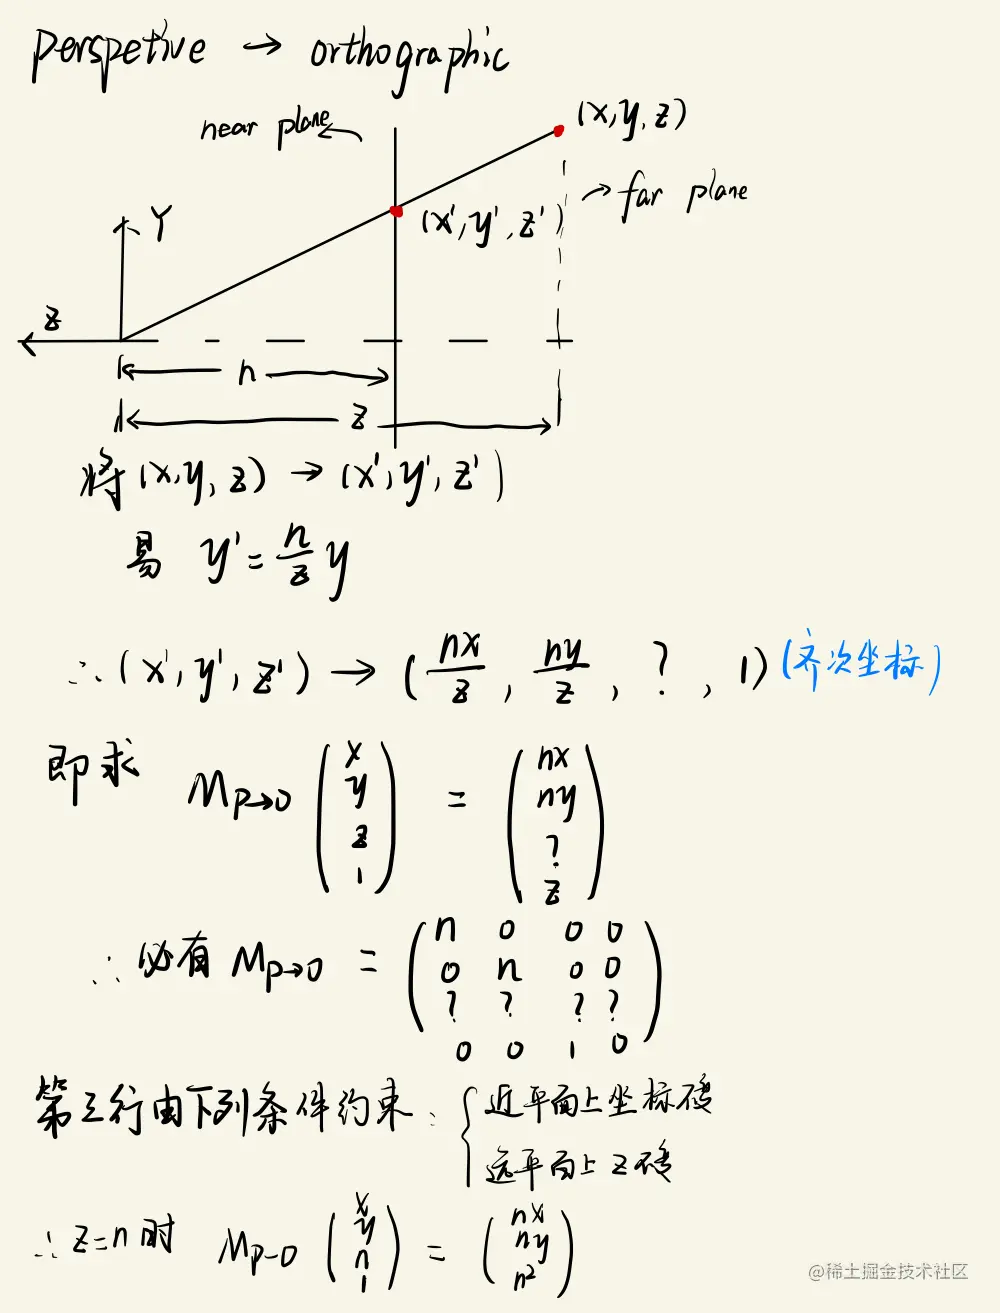 perspetive → orthographic
near plane
(x, y, z)
far plane
(x', y', z')
Y
z
n
z
将 (x, y, z) → (x', y', z')
易 y' = n/z y
∴ (x', y', z') → (nx/z, ny/z, ?, 1) (齐次坐标)
即求 Mp→o (x y z 1) = (nx ny ? z)
∴ 必有 Mp→o = (n 0 0 0
0 n 0 0
? ? ? ?
0 0 1 0)
第三行由下列条件约束: { 近平面上坐标不变
远平面上 z 不变
∴ z=n 时 Mp-o (x y n 1) = (nx ny n²)
@稀土掘金技术社区